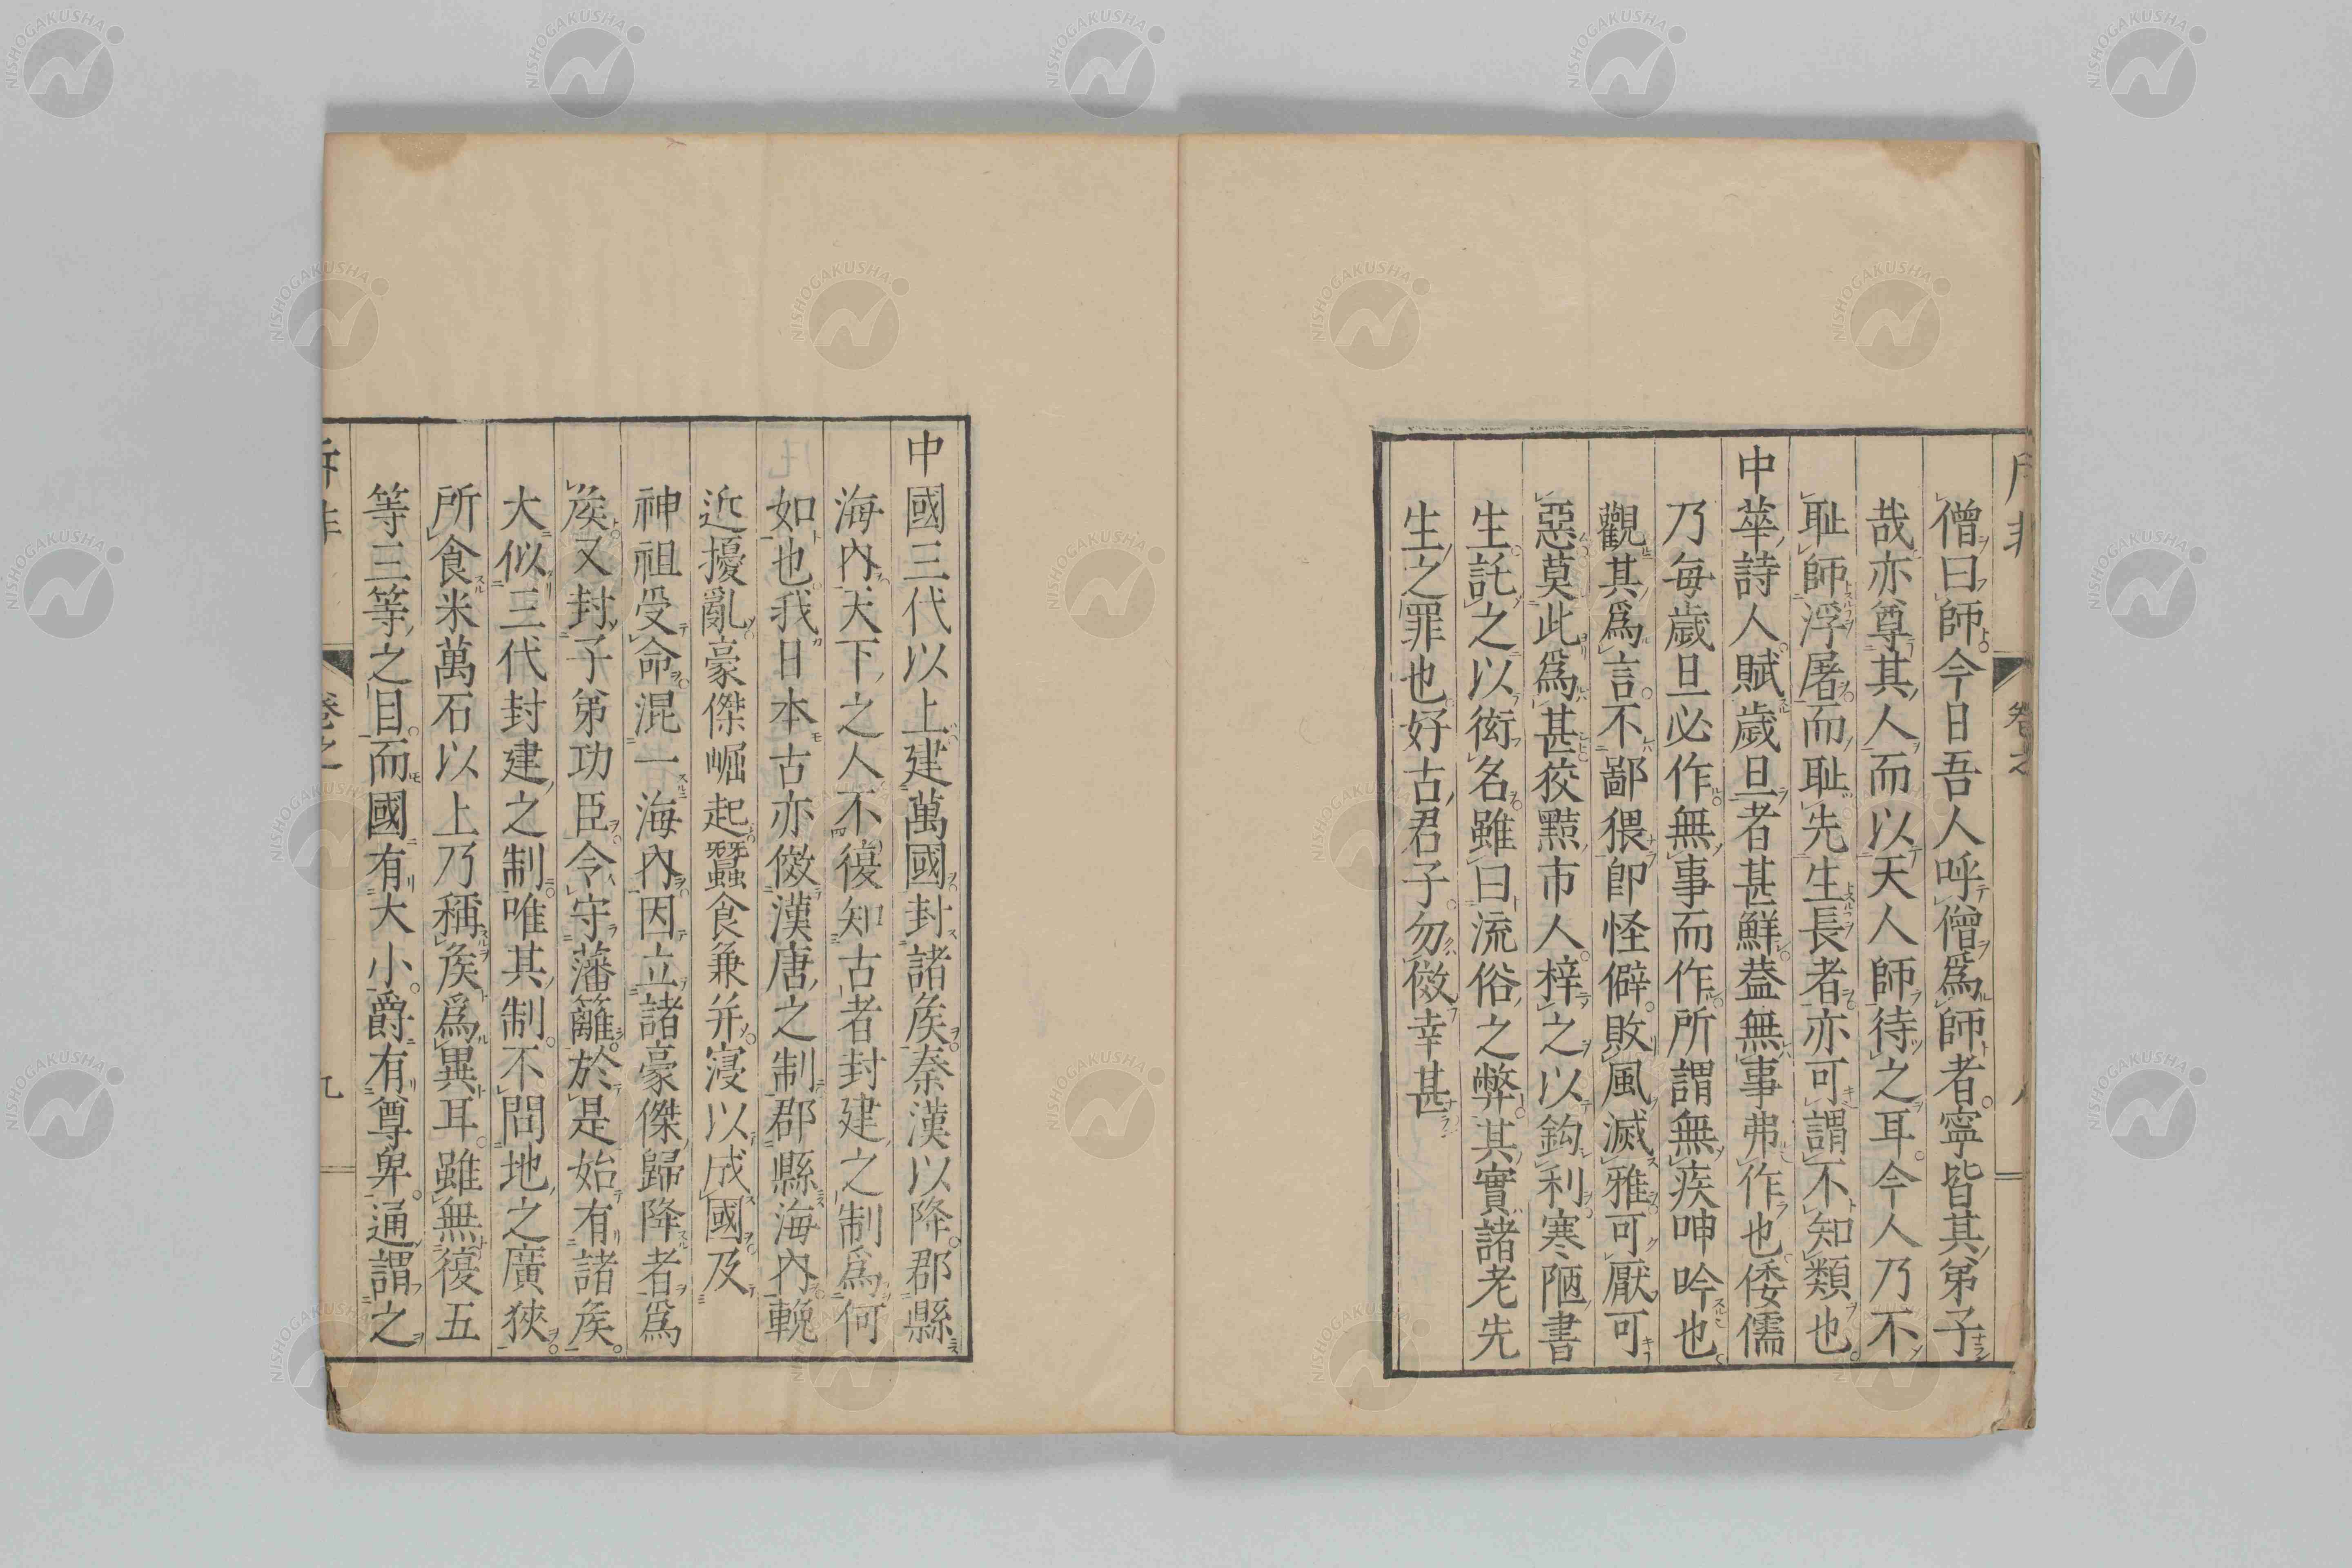 僧曰師今日吾人呼僧爲師者寧皆其弟子
哉亦尊其人而以天人師待之耳今人乃不
耻師浮屠而耻先生長者亦可謂不知類也
中華詩人賦歲旦者甚鮮葢無事弗作也倭儒
乃每歲旦必作無事而作所謂無疾呻吟也
觀其爲言不鄙猥卽怪僻敗風滅雅可厭可
惡莫此爲甚狡黠市人梓之以鈎利寒陋書
生託之以衒名雖曰流俗之弊其實諸老先
生之罪也好古君子勿傚幸甚
中國三代以上建萬國封諸矦秦漢以降郡縣
海內天下之人不復知古者封建之制爲何
如也我日本古亦傚漢唐之制郡縣海內輓
近擾亂豪傑崛起蠶食兼幷寖以成國及
神祖受命混一海內因立諸豪傑歸降者爲
矦又封子弟功臣令守藩籬於是始有諸矦
大似三代封建之制唯其制不問地之廣狹
所食米萬石以上乃稱矦爲異耳雖無復五
等三等之目而國有大小爵有尊卑通謂之
九
NISHOGAKUSHA